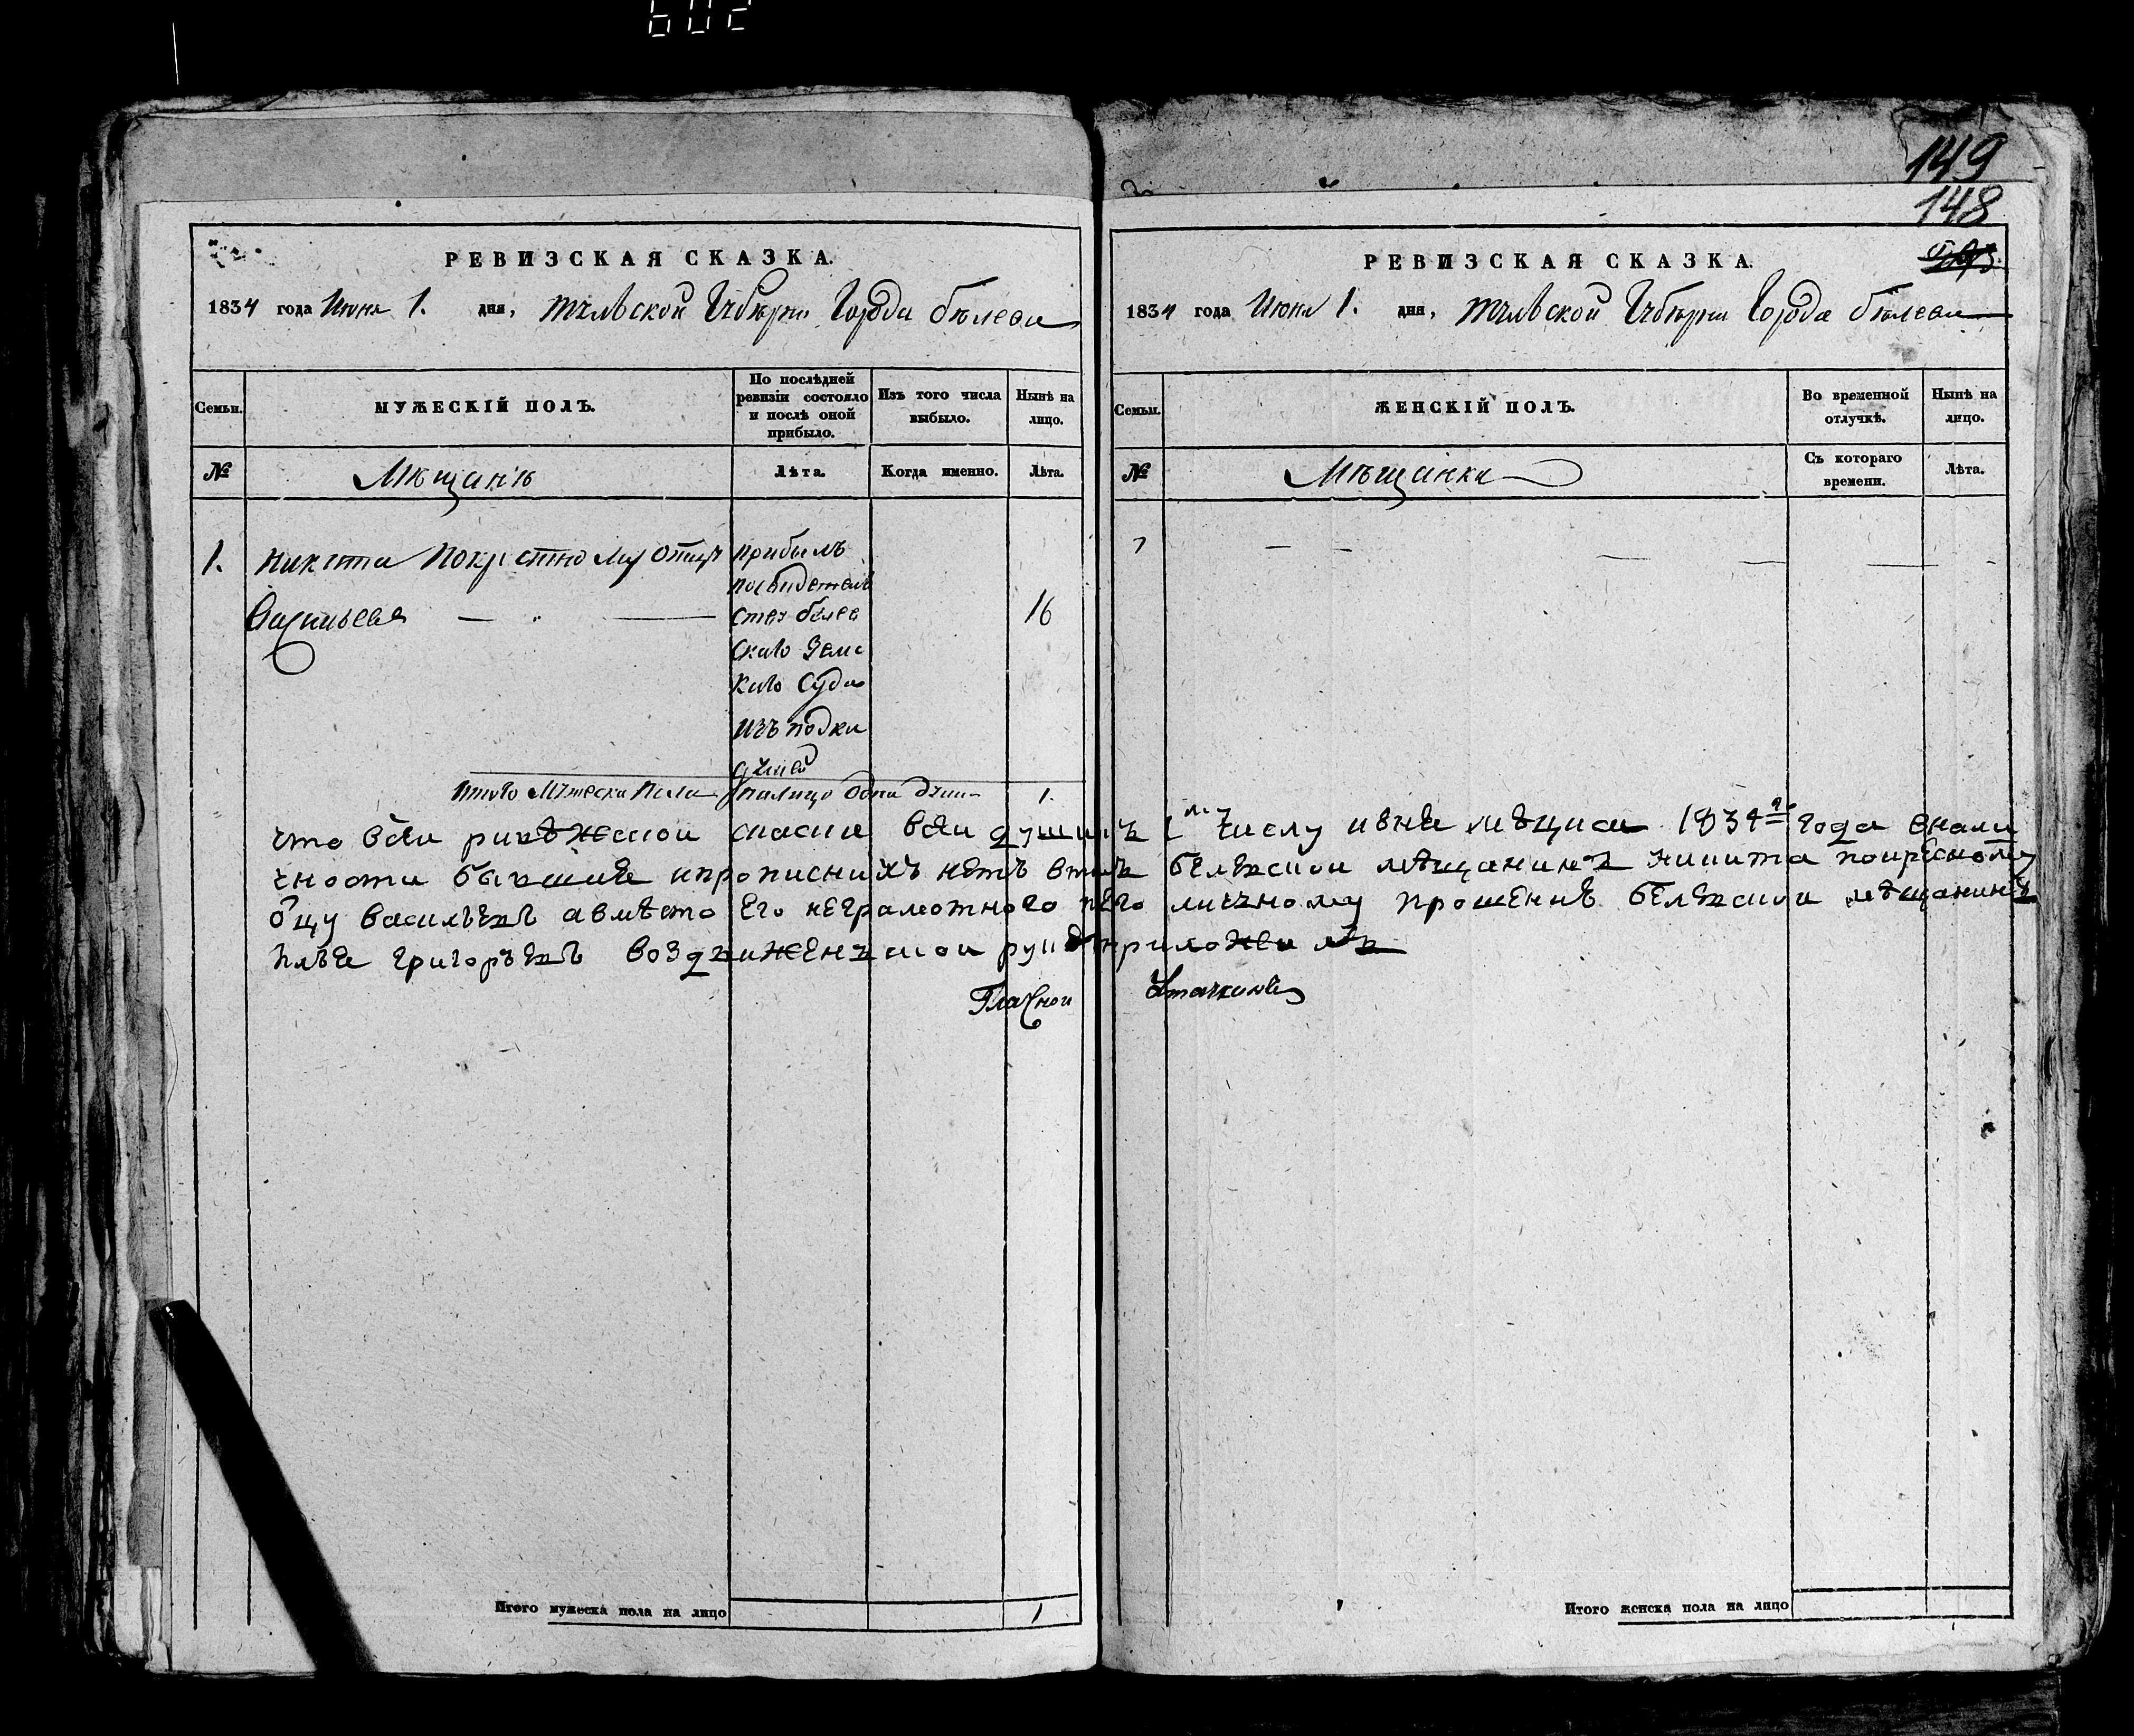 602
149
148
РЕВИЗСКАЯ СКАЗКА.
1834 года Июня 1. дня, Тульской Губерни Города Бѣлева
Семьи.
МУЖЕСКІЙ ПОЛЪ.
По послѣдней ревизіи состояло и послѣ оной прибыло.
Изъ того числа выбыло.
Нынѣ на лицо.
№
Мѣщанинъ
Лѣта.
Когда именно.
Лѣта.
1. Никита По крестному отцу
Васильевъ
прибылъ
по свидетель
ству белев
скаго Земс
каго Суда
изъ подки
дышей
16
Итого Мужеска Пола налицо одна душа 1.
РЕВИЗСКАЯ СКАЗКА.
1834 года Июня 1. дня, Тульской Губерни Города Бѣлева
Семьи.
ЖЕНСКІЙ ПОЛЪ.
Во временной отлучкѣ.
Нынѣ на лицо.
№
Мѣщанка
Съ котораго времени.
Лѣта.
что всеи сказке все души къ 1му числу июня месяца 1834го года внали
чности бывшие и прописных нетъ втомъ белевской мещанинъ никита покрестному
оцу васильевъ авместо его неграмотного поего личному прошению белевской мещанинъ
григорьевъ руку приложилъ
Гласной
Итого мужеска пола на лицо 1
Итого женска пола на лицо